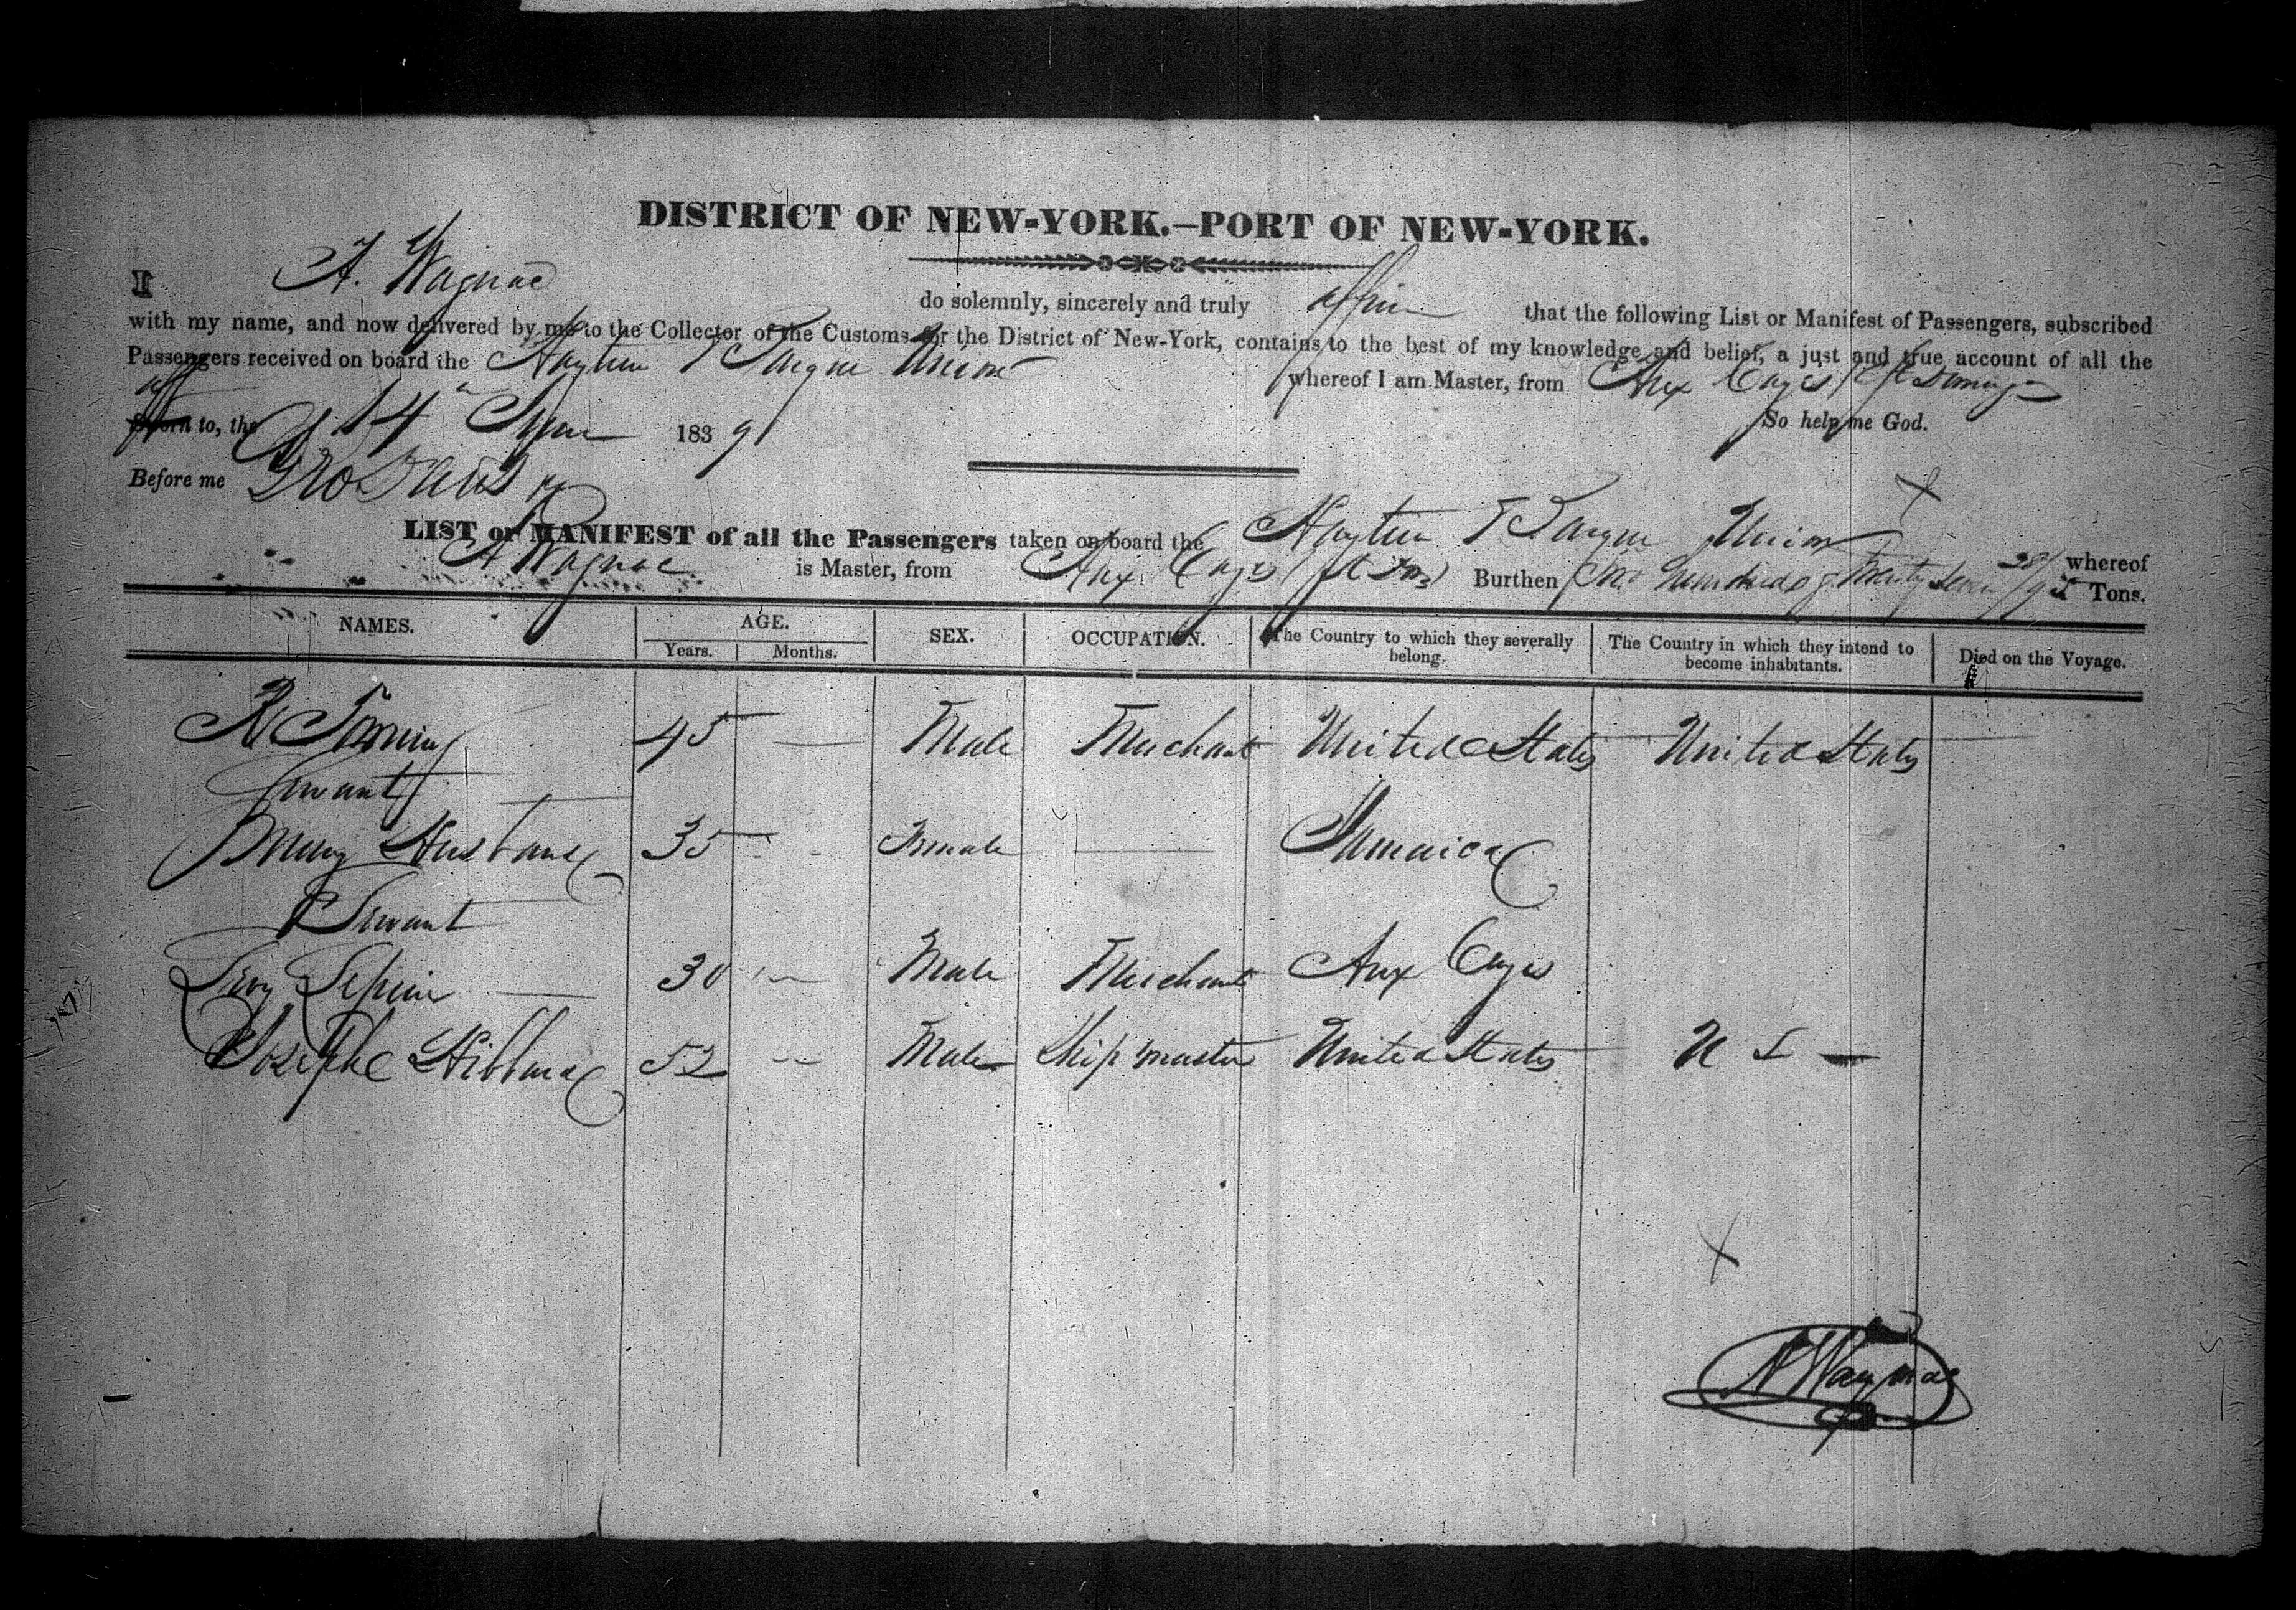 DISTRICT OF NEW-YORK.–PORT OF NEW-YORK.
I A. Wagnac do solemnly, sincerely and truly affirm that the following List or Manifest of Passengers, subscribed
with my name, and now delivered by me to the Collector of the Customs for the District of New-York, contains to the best of my knowledge and belief, a just and true account of all the
Passengers received on board the Haytien Union whereof I am Master, from Aux Cayes St Domingo
Sworn to, the 14 1839 So help me God.
Before me
LIST or MANIFEST of all the Passengers taken on board the Haytien Union whereof
A Wagnac is Master, from Aux Cayes Burthen One hundred & Twenty Seven 28/95 Tons.
NAMES. AGE. SEX. OCCUPATION. The Country to which they severally belong. The Country in which they intend to become inhabitants. Died on the Voyage.
Years. Months.
45 — Male Merchant United States United States
Servant
Mary Husband 35 Female — Jamaica
Servant
30 — Male Merchant Aux Cayes
Joseph Hibbard 52 Male Ship master United States U S —
A Wagnac